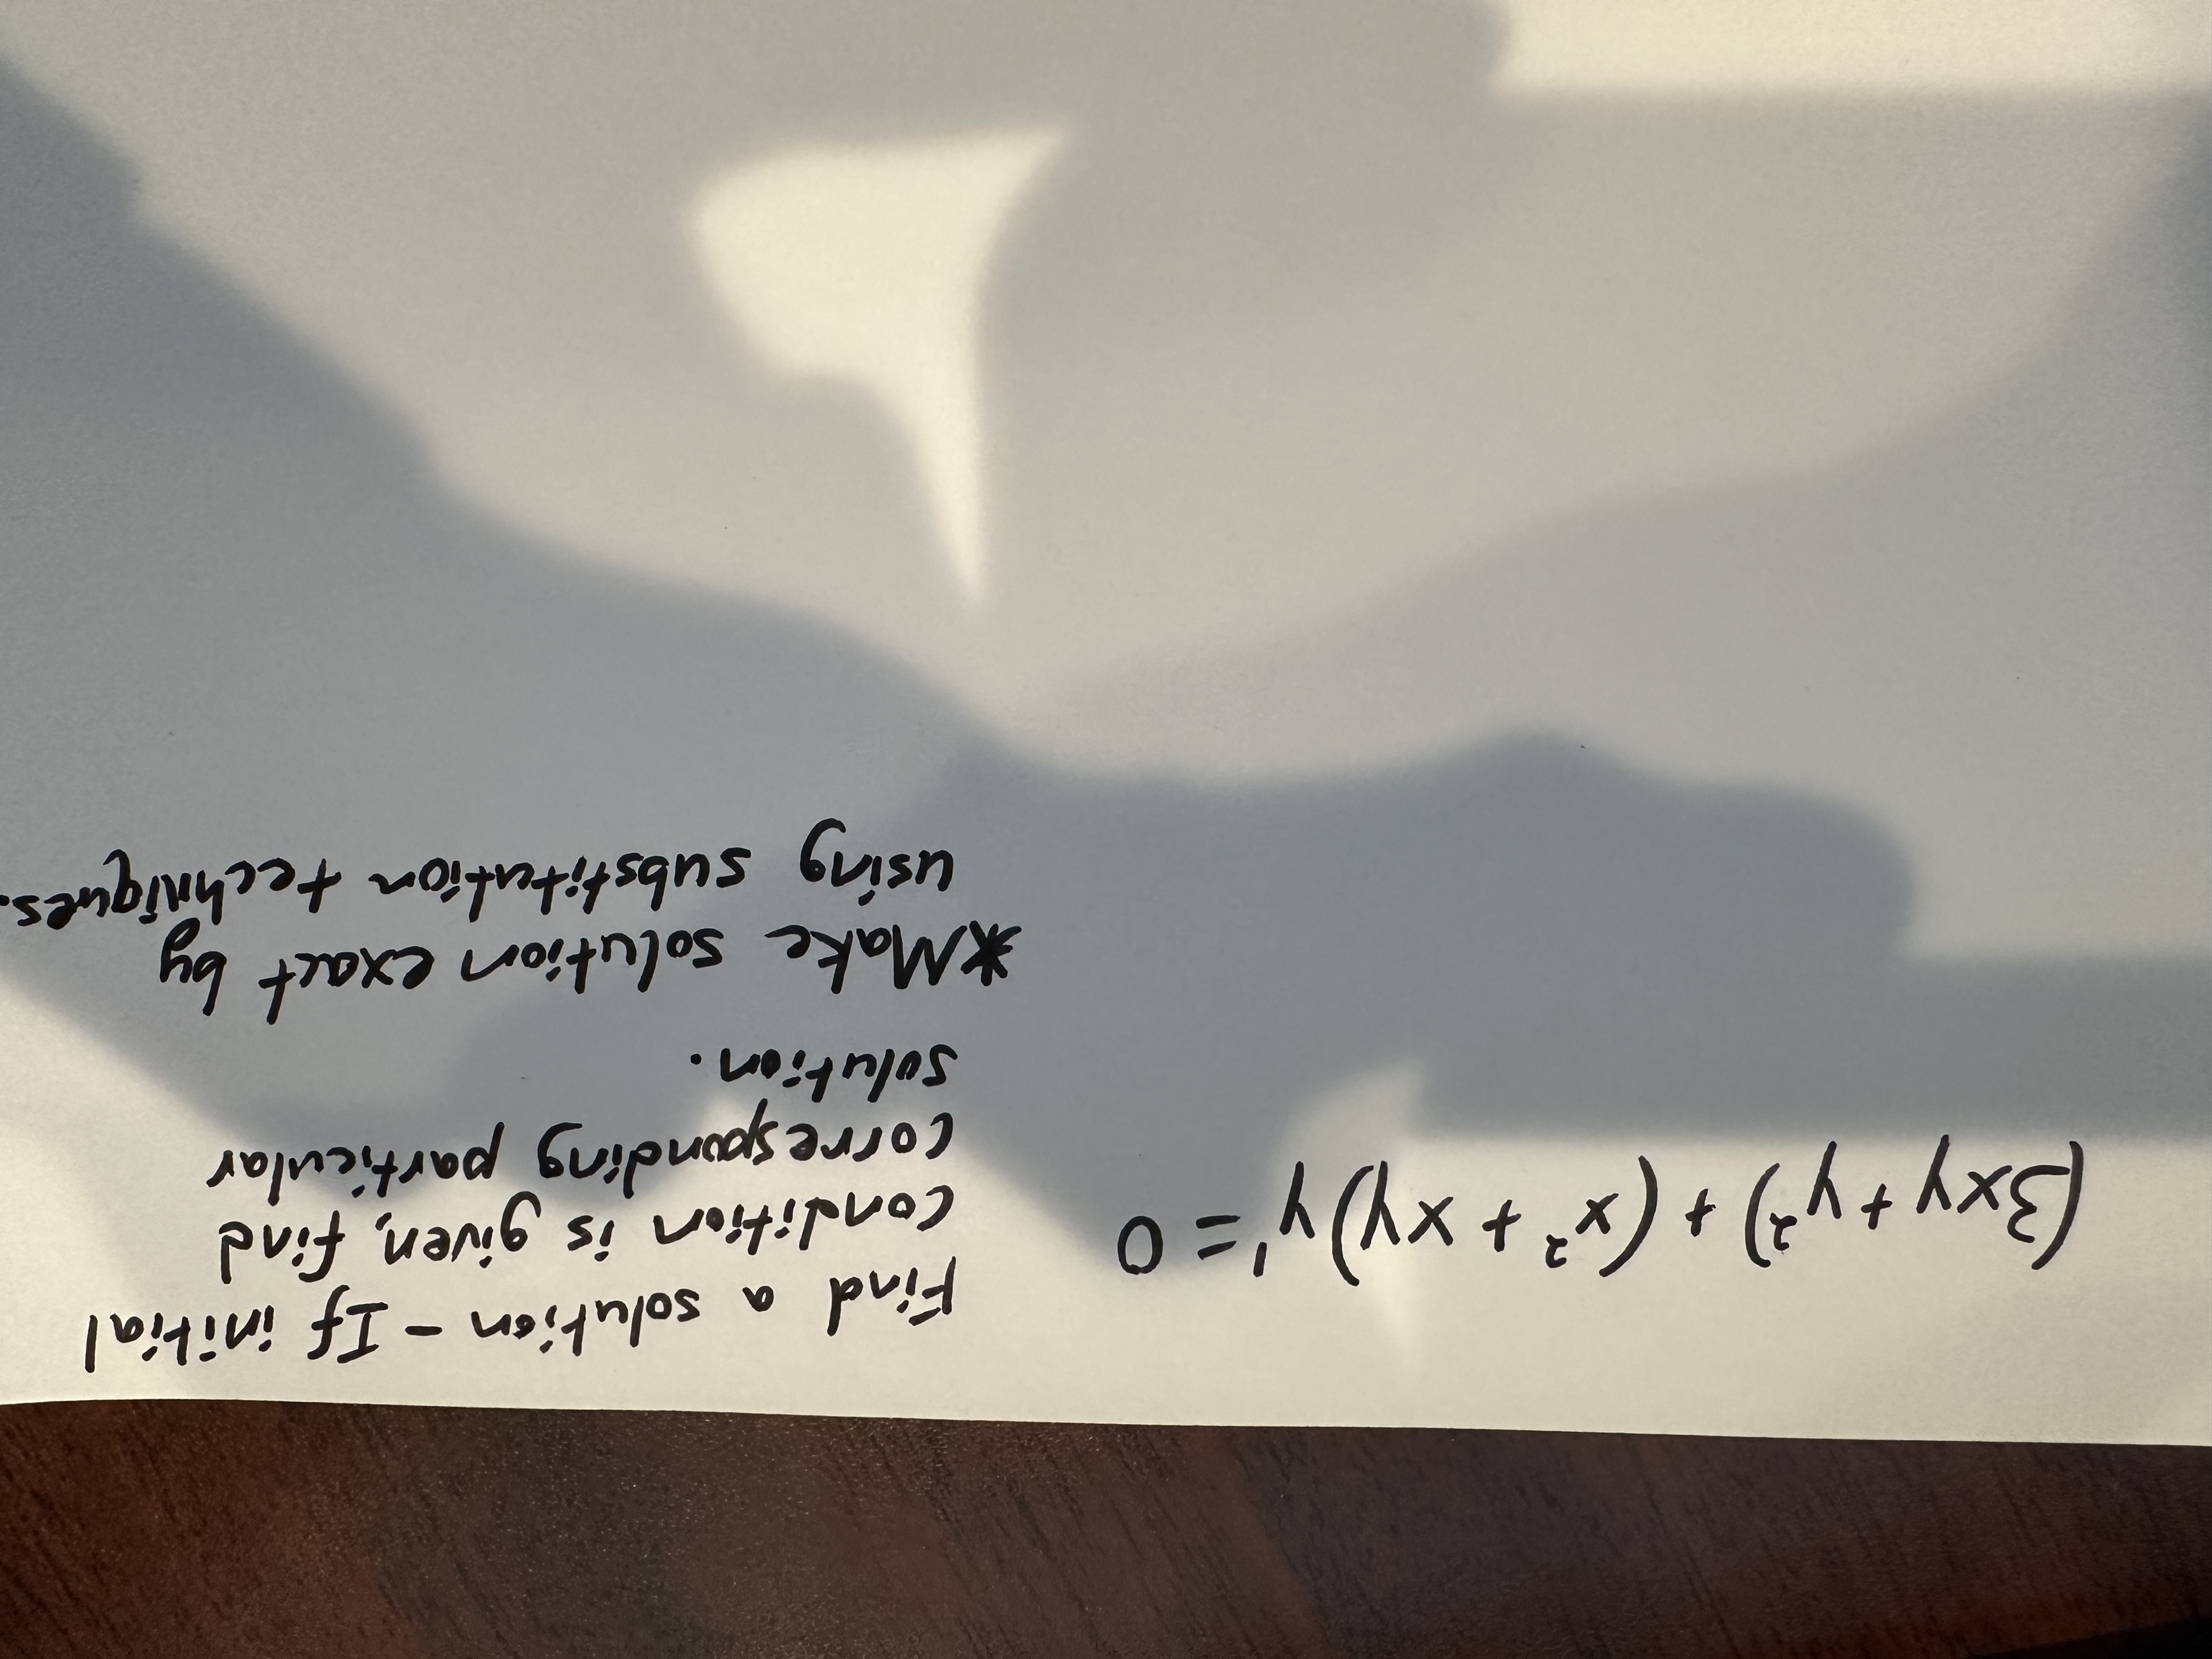 (3xy + y²) + (x² + xy)y' = 0
Find a solution - If initial
condition is given, find
corresponding particular
solution.
*Make solution exact by
using substitution techniques.